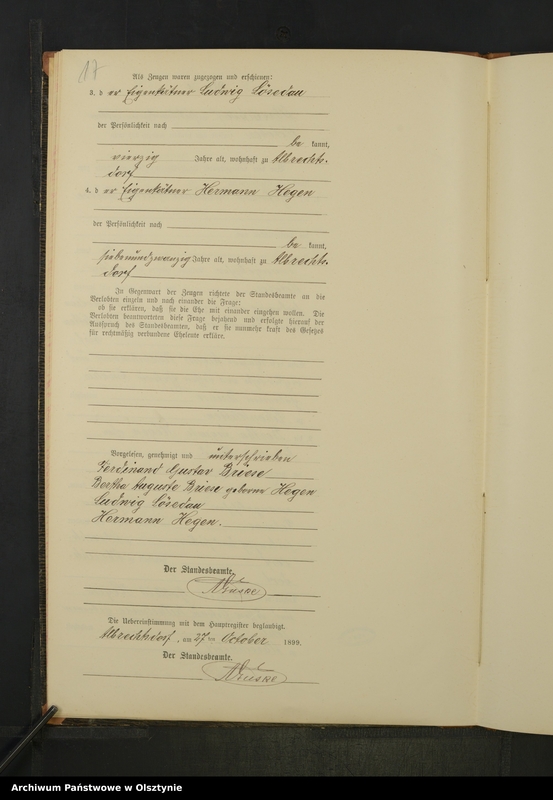 17
Als Zeugen waren zugezogen und erschienen:
3. der Eigenkätner Ludwig Lösedau
der Persönlichkeit nach
be kannt,
vierzig Jahre alt, wohnhaft zu Albrechts-
dorf
4. der Eigenkätner Hermann Hegen
der Persönlichkeit nach
be kannt,
siebenundzwanzig Jahre alt, wohnhaft zu Albrechts-
dorf
In Gegenwart der Zeugen richtete der Standesbeamte an die
Verlobten einzeln und nach einander die Frage:
ob sie erklären, daß sie die Ehe mit einander eingehen wollen. Die
Verlobten beantworteten diese Frage bejahend und erfolgte hierauf der
Ausspruch des Standesbeamten, daß er sie nunmehr kraft des Gesetzes
für rechtmäßig verbundene Eheleute erkläre.
Vorgelesen, genehmigt und unterschrieben
Ferdinand Gustav Briese
Bertha Auguste Briese geborne Hegen
Ludwig Lösedau
Hermann Hegen.
Der Standesbeamte.
Die Uebereinstimmung mit dem Hauptregister beglaubigt.
Albrechtsdorf, am 27 ten October 1899.
Der Standesbeamte.
Archiwum Państwowe w Olsztynie